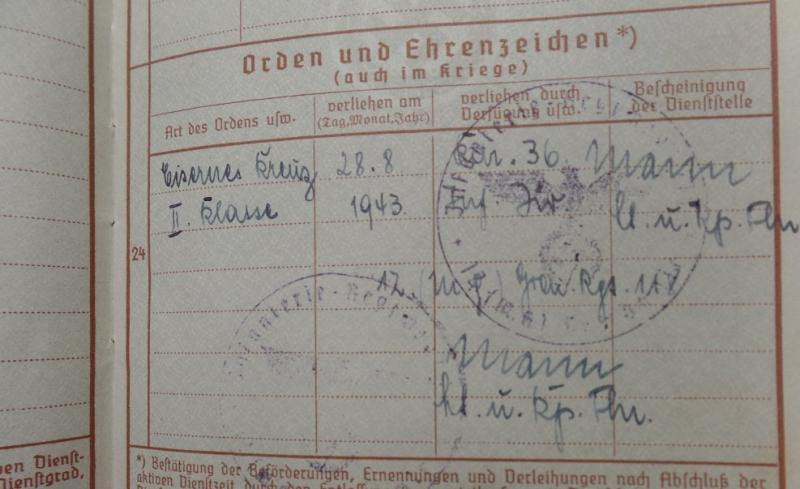 Orden und Ehrenzeichen*)
(auch im Kriege)
Art des Ordens usw.
verliehen am
(Tag, Monat, Jahr)
verliehen durch
Verfügung usw.
Bescheinigung
der Dienststelle
Eisernes Kreuz 28.8 36. Mann
II. Klasse 1943 Inf. Div lt. u. Kp. Fhr
24
12. Gren. Rgt. 118
Infanterie-Regiment
Mann
lt. u. Kp. Fhr.
*) Bestätigung der Beförderungen, Ernennungen und Verleihungen nach Abschluß der
aktiven Dienstzeit durch den
Dienst-
Dienstgrad,